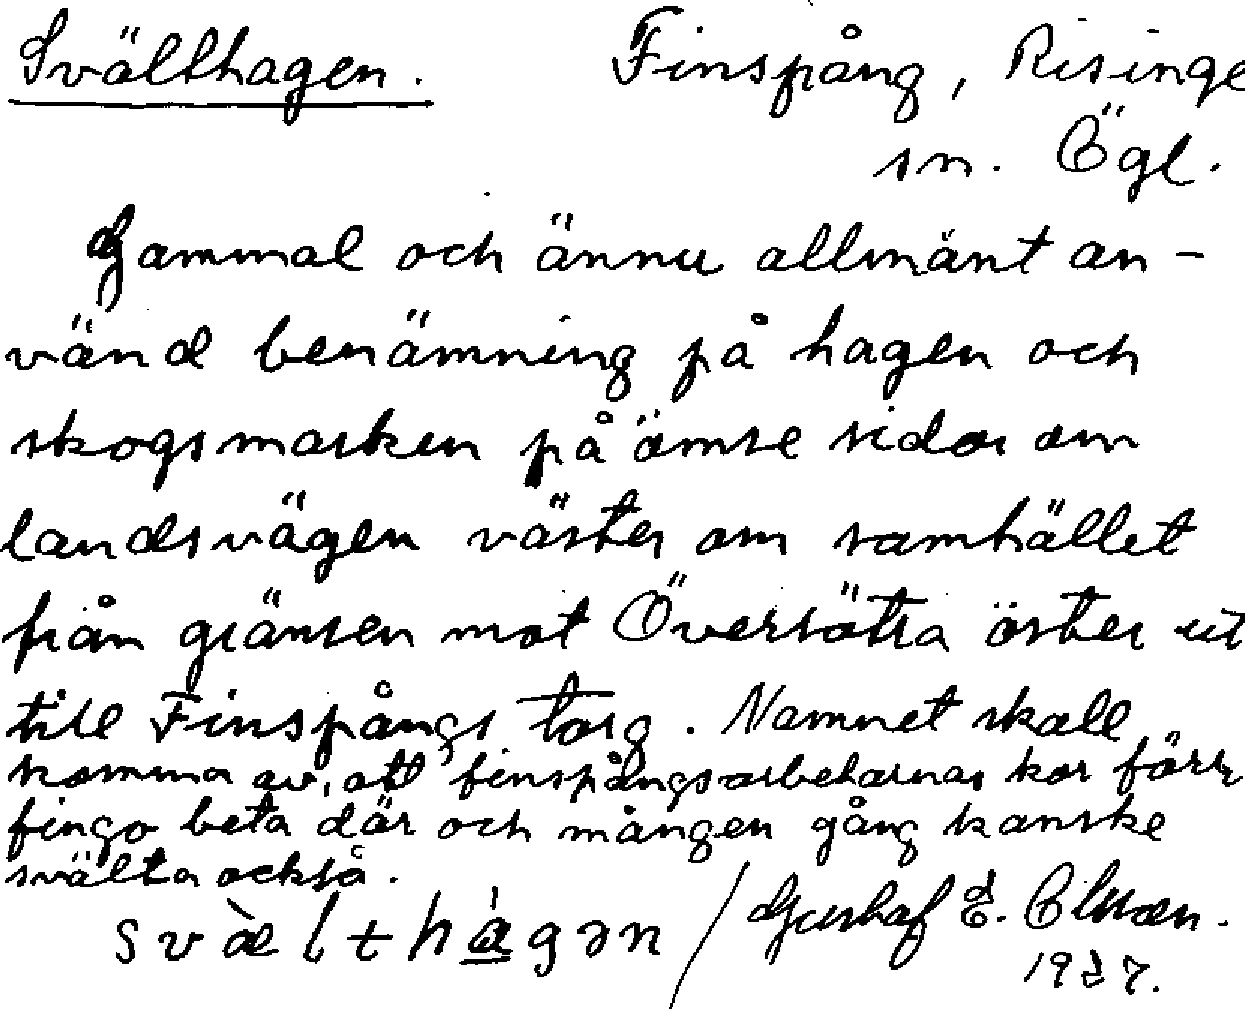 Svälthagen. Finspång, Risinge
sn. Ögl.
Gammal och ännu allmänt an-
vänd benämning på hagen och
skogsmarken på ömse sidor om
landsvägen väster om samhället
från gränsen mot Översätra öster ut
till Finspångs torg. Namnet skall
komma av, att finspångsarbetarnas kor förr
fingo beta där och mången gång kanske
svälta också.
svæ̀lthágən / Gustaf E. Olsson.
1937.